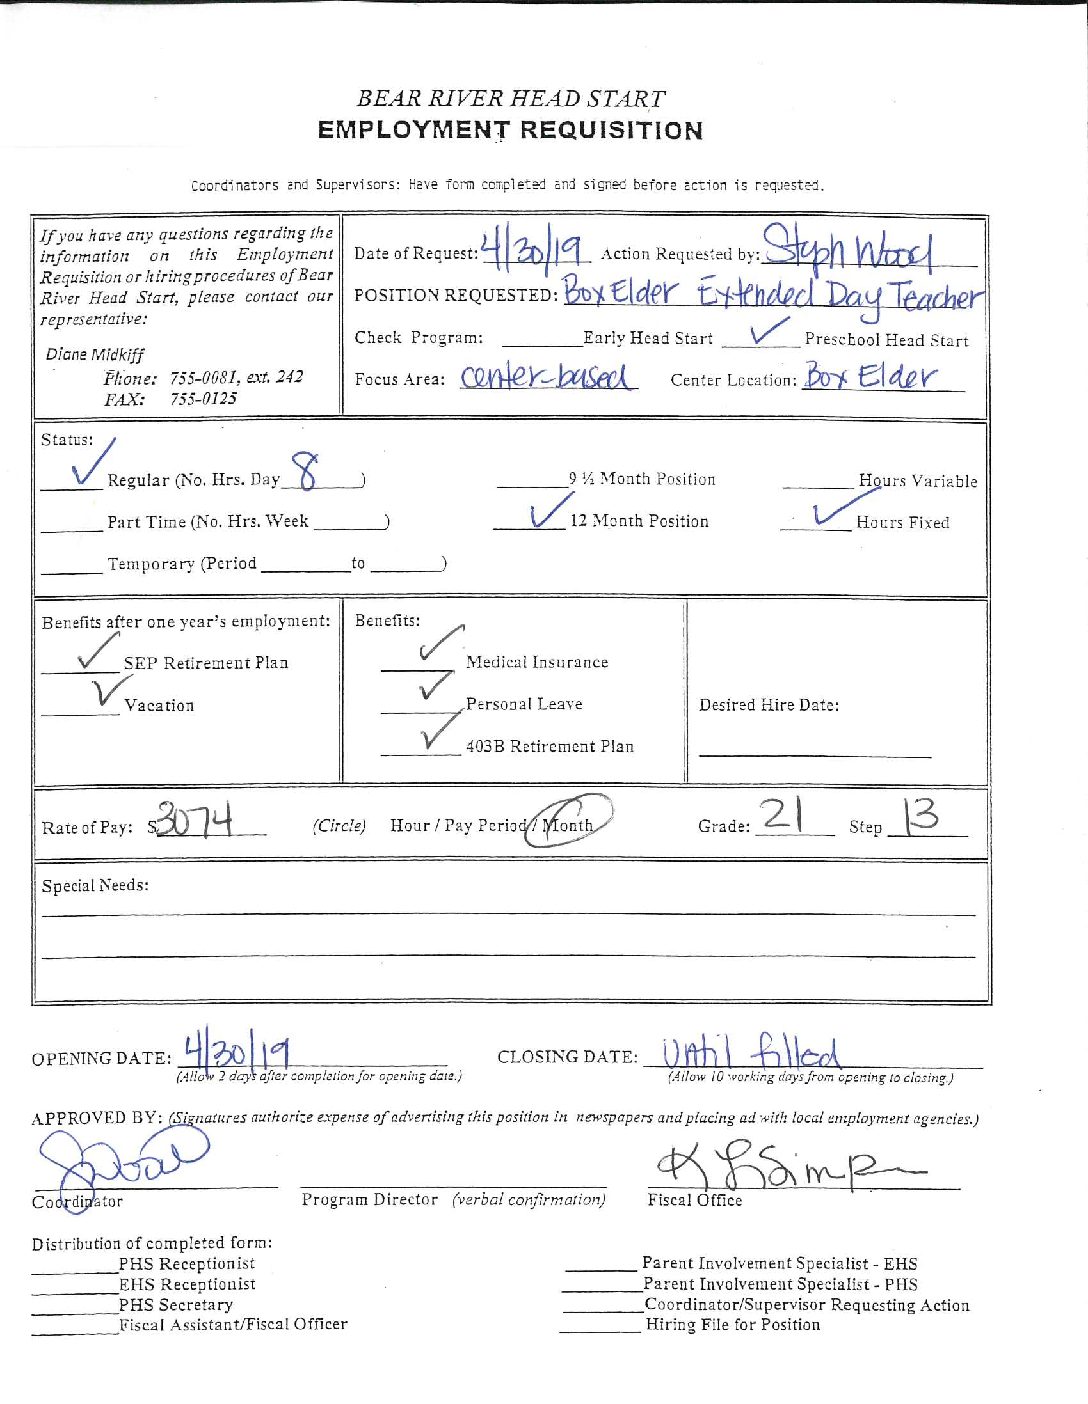 BEAR RIVER HEAD START
EMPLOYMENT REQUISITION
Coordinators and Supervisors: Have form completed and signed before action is requested.
If you have any questions regarding the
information on this Employment
Requisition or hiring procedures of Bear
River Head Start, please contact our
representative:
Diane Midkiff
Phone: 755-0081, ext. 242
FAX: 755-0125
Date of Request: 4/30/19 Action Requested by: Styph Wood
POSITION REQUESTED: Box Elder Extended Day Teacher
Check Program: ______Early Head Start ✓ Preschool Head Start
Focus Area: center-based Center Location: Box Elder
Status:
✓ Regular (No. Hrs. Day 8 ) ______9 ½ Month Position ______Hours Variable
______Part Time (No. Hrs. Week ______) ✓ 12 Month Position ✓ Hours Fixed
______Temporary (Period ______to ______)
Benefits after one year's employment:
✓ SEP Retirement Plan
✓ Vacation
Benefits:
✓ Medical Insurance
✓ Personal Leave
✓ 403B Retirement Plan
Desired Hire Date:
Rate of Pay: $3074 (Circle) Hour / Pay Period / Month Grade: 21 Step 13
Special Needs:
OPENING DATE: 4/30/19 CLOSING DATE: Until filled
(Allow 2 days after completion for opening date.) (Allow 10 working days from opening to closing.)
APPROVED BY: (Signatures authorize expense of advertising this position in newspapers and placing ad with local employment agencies.)
Coordinator Program Director (verbal confirmation) Fiscal Office
Distribution of completed form:
______PHS Receptionist ______Parent Involvement Specialist - EHS
______EHS Receptionist ______Parent Involvement Specialist - PHS
______PHS Secretary ______Coordinator/Supervisor Requesting Action
______Fiscal Assistant/Fiscal Officer ______Hiring File for Position